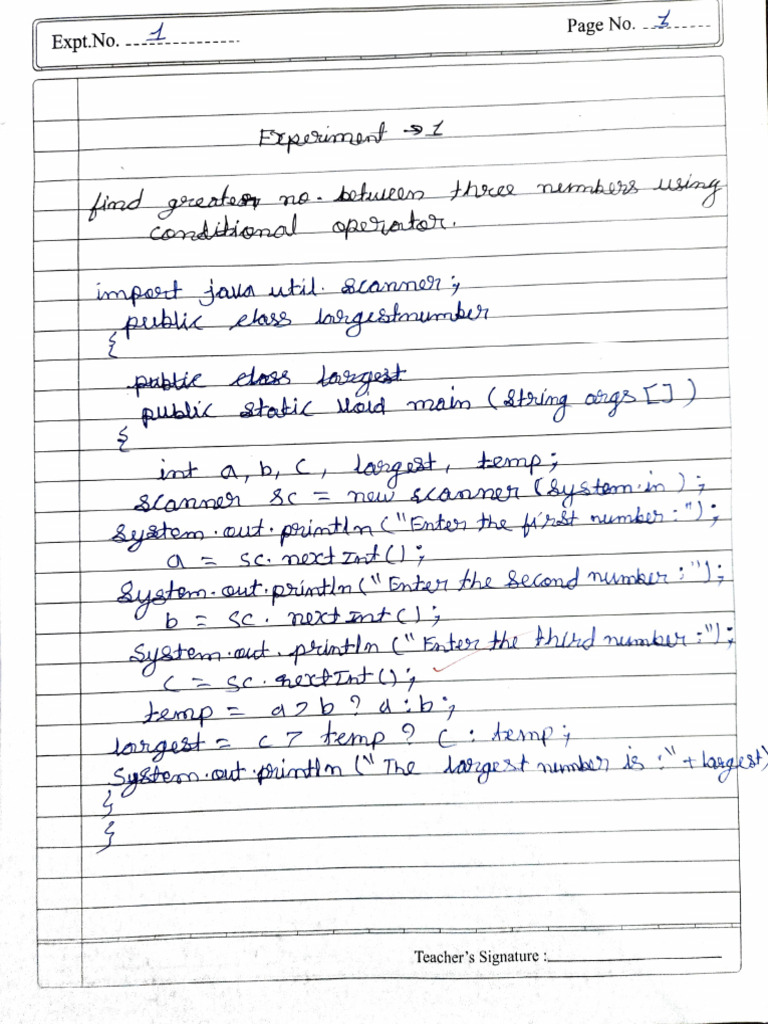 Expt.No. 1
Page No. 1
Experiment → 1
find greater no. between three numbers using
conditional operator.
import java util. scanner;
public class largestnumber
{
public class largest
public static void main (String args [])
{
int a, b, c, largest, temp;
scanner sc = new scanner (System.in);
System.out.println("Enter the first number:");
a = sc.nextInt();
System.out.println("Enter the second number:");
b = sc. nextInt();
System.out.println ("Enter the third number:");
c = sc.nextInt();
temp = a > b ? a : b;
largest = c > temp ? c : temp;
System.out.println ("The largest number is :" + largest)
}
}
Teacher's Signature :